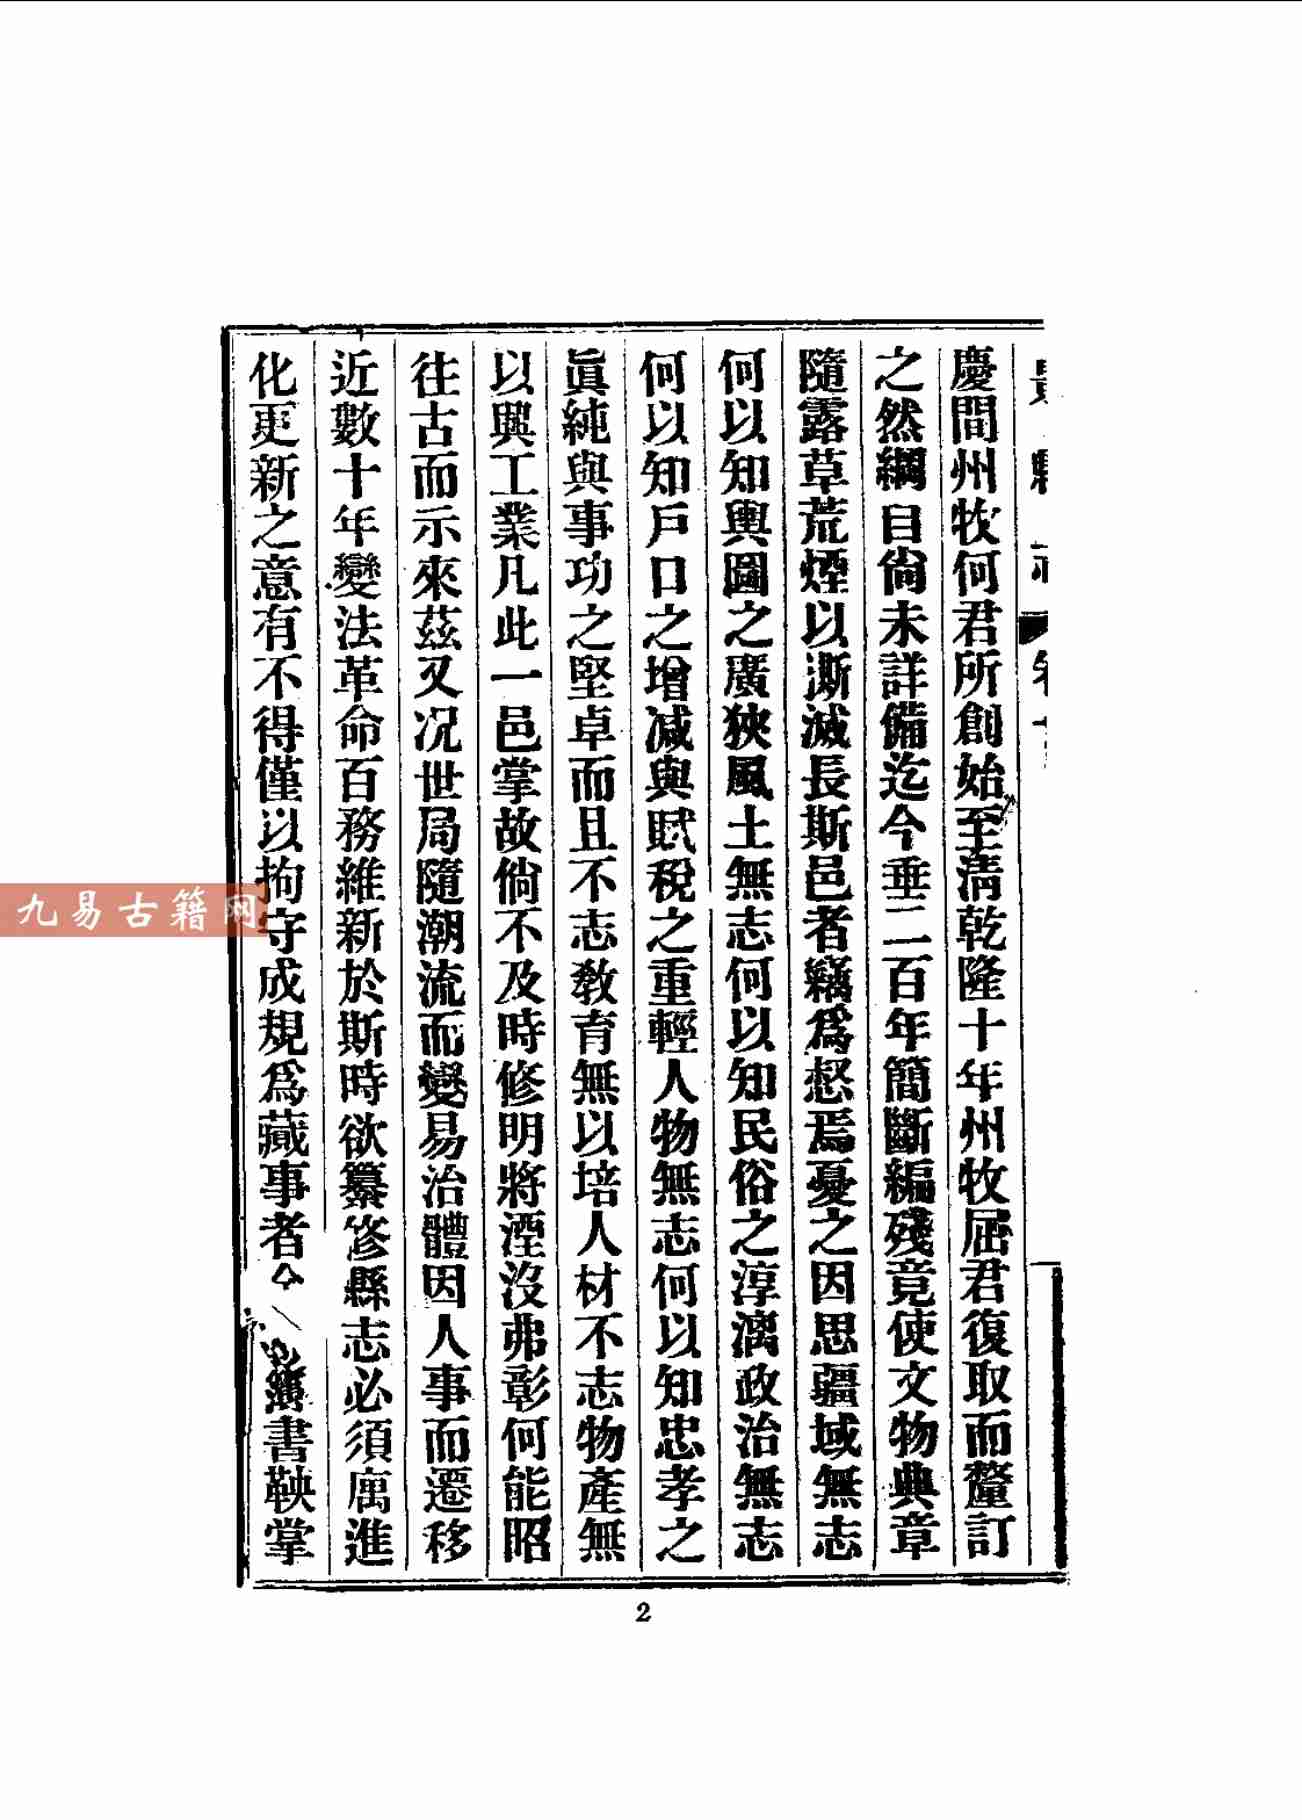 慶間州牧何君所創始至淸乾隆十年州牧屈君復取而釐訂
之然綱目尙未詳備迄今垂二百年簡斷編殘竟使文物典章
隨露草荒煙以澌滅長斯邑者竊爲惄焉憂之因思疆域無志
何以知輿圖之廣狹風土無志何以知民俗之淳漓政治無志
何以知戶口之增減與賦稅之重輕人物無志何以知忠孝之
眞純與事功之堅卓而且不志敎育無以培人材不志物產無
以興工業凡此一邑掌故倘不及時修明將湮沒弗彰何能昭
往古而示來茲又況世局隨潮流而變易治體因人事而遷移
近數十年變法革命百務維新於斯時欲纂修縣志必須寓進
化更新之意有不得僅以拘守成規爲藏事者今
簿書鞅掌
2
九易古籍网